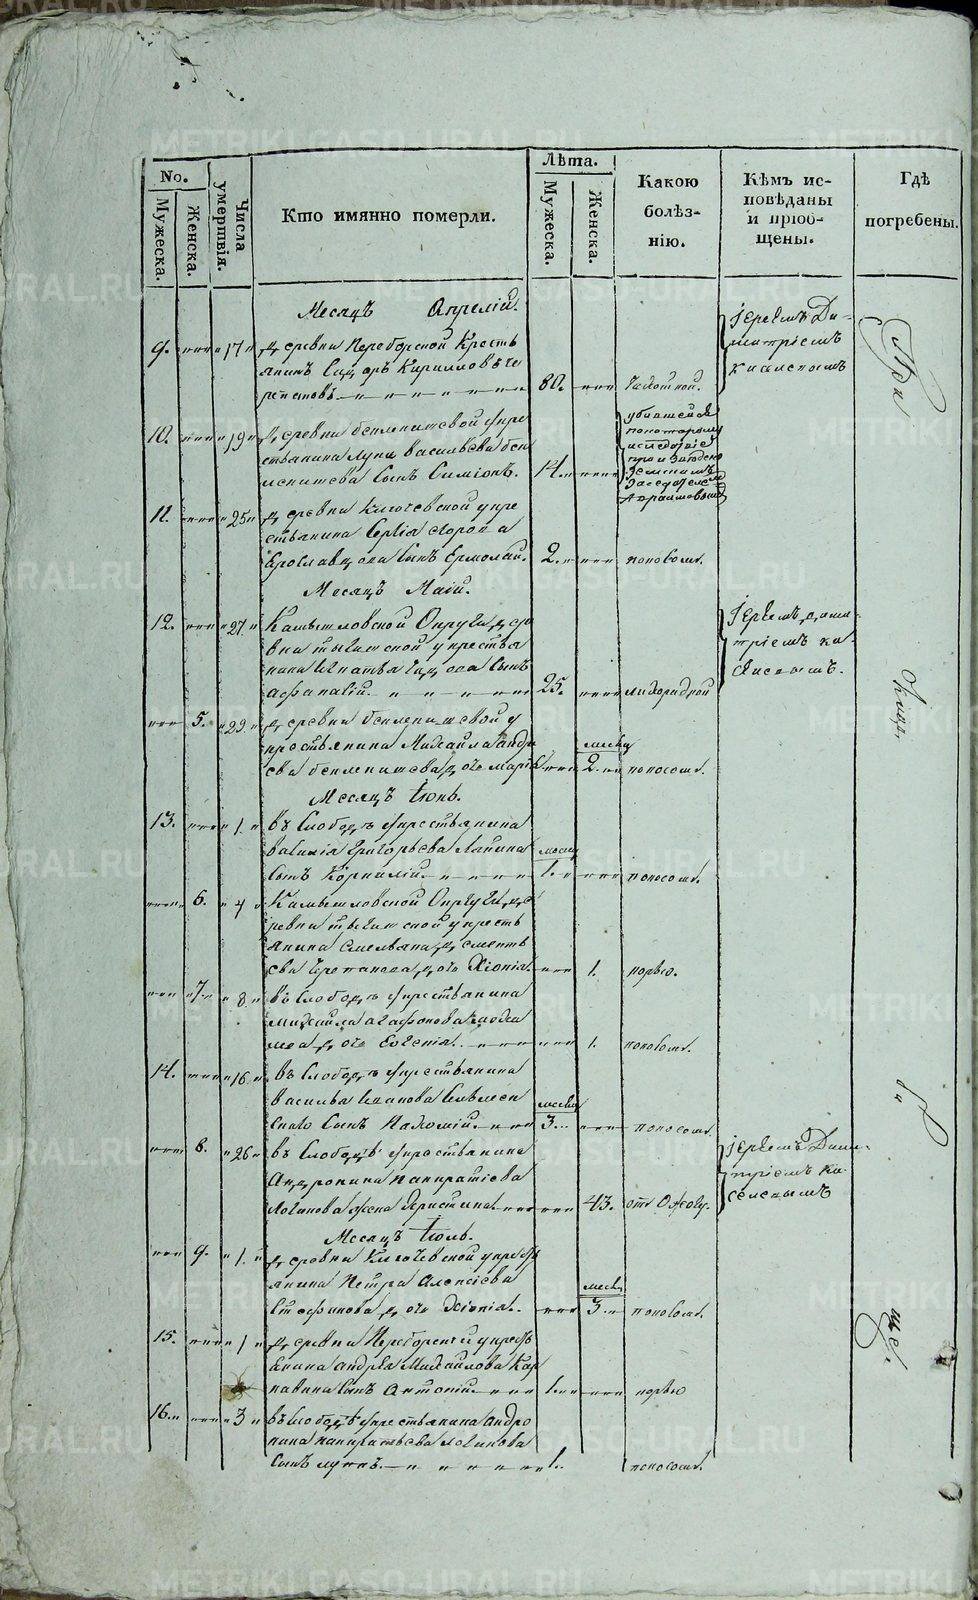 No.
Мужеска.
Женска.
Числа умертвія.
Кто имянно померли.
Лѣта.
Мужеска.
Женска.
Какою
болѣз-
нію.
Кѣмъ ис-
повѣданы
и пріоб-
щены.
Гдѣ
погребены.
Месяцъ Апрелій.
9. 17 деревни Переборской Кресть
янинъ Сидоръ Кирилловъ Че
репановъ 80. чахоткой.
Іереемъ Ди-
митріемъ
Киселевымъ
10. 19 деревни бекленищевой Кре
стьянина Луки Васильева бек
ленищева сынъ Симіонъ. 14.
убившейся
по которому
изследствіе
произведено
Земскимъ
Заседателем
Абрамовымъ
11. 25 деревни Ключевской кре
стьянина Сергія
Ярославцова сынъ Ермолай. 2. поносомъ.
Месяцъ Маій.
12. 27. Камышловской Округи, де
вни крестья
нина Игнатья сынъ
Афанасій. 25. лихорадкой
Іереемъ Дими
тріемъ Ки
селевымъ.
5. 29. деревни бекленищевой к
рестьянина Михайла Андре
ева бекленищева дочь Марія месяц 2. поносомъ.
Месяцъ Іюнь.
13. 1. въ Слободѣ крестьянина
Василія Григорьева Лапина
сынъ Корнилій месяц 1. поносомъ.
6. 4 Камышловской Округи, де
ревни кресть
янина Емельяна
Черепанова дочь Хіонія. 1. корью.
7. 8. въ Слободѣ крестьянина
Михаила Агафонова
дочь Евгенія. 1. поносомъ.
14. 16 въ Слободѣ крестьянина
Василья Иванова
сынъ Пахомій. месяц 3. поносомъ.
8. 26 въ Слободѣ крестьянина
Андроника Панкратіева
Логинова жена Христина. 43.
Іереемъ Дими
тріемъ Ки
селевымъ
Месяцъ Іюль.
9. 1. деревни Ключевской крест
янина Петра Алексіева
Стефанова дочь Хіонія. месяц 3. поносомъ.
15. 1 деревни Переборской крест
янина Андрея Михайлова Кор
навина сынъ Антоній. 1. корью
16. 3 въ Слободѣ крестьянина Андро
ника Панкратьева Логинова
сынъ Лука. 1. поносомъ.
На
Клад
би
ще.
METRIKI.GASO-URAL.RU